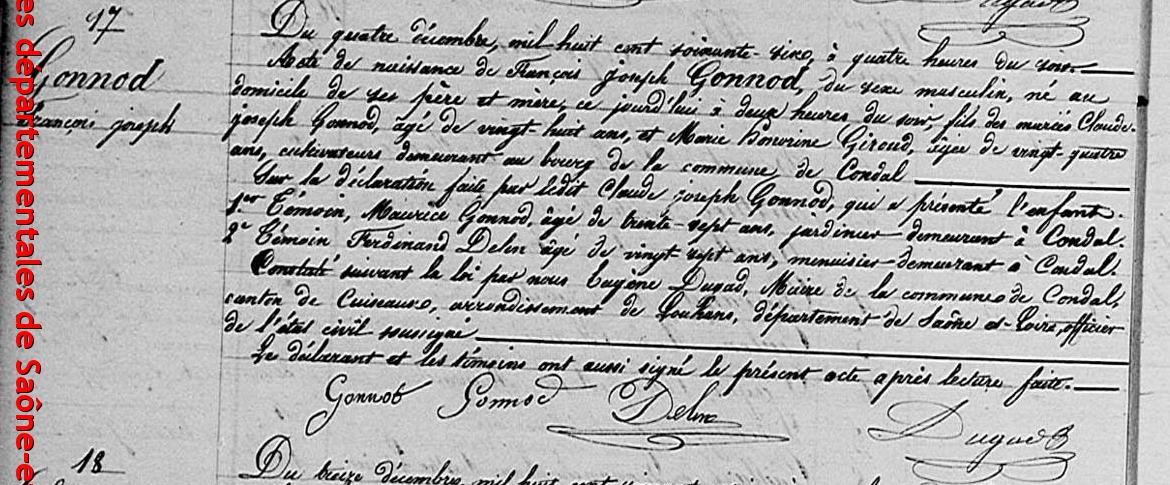 es départementales de Saône-e
17
Gonnod
François joseph
Du quatre décembre, mil huit cent soixante-seize, à quatre heures du soir.
Acte de naissance de François joseph Gonnod, du sexe masculin, né au
domicile de ses père et mère, ce jourd'hui à deux heures du soir, fils des mariés Claude-
joseph Gonnod, âgé de vingt-huit ans, et Marie Honorine Giroud, âgée de vingt-quatre
ans, cultivateurs demeurant au bourg de la commune de Condal
Sur la déclaration faite par ledit Claude joseph Gonnod, qui a présenté l'enfant.
1er Témoin, Maurice Gonnod, âgé de trente-sept ans, jardinier demeurant à Condal.
2e Témoin Ferdinand Delin âgé de vingt sept ans, menuisier demeurant à Condal.
Constaté suivant la loi par nous Eugène Dugad, Maire de la commune de Condal,
canton de Cuiseaux, arrondissement de Louhans, département de Saône et-Loire, officier
de l'état civil soussigné
Le déclarant et les témoins ont aussi signé le présent acte après lecture faite.
Gonnod Gonnod Delin Dugad
18
Du treize décembre, mil huit cent